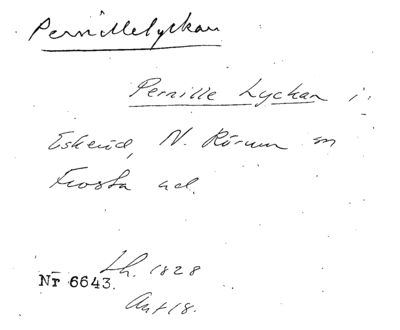 Pernillelyckan
Pernille Lyckan i
Eskeröd, N. Rörum sn
Frosta hd.
Lh. 1828
Nr 6643.
Akt 18.